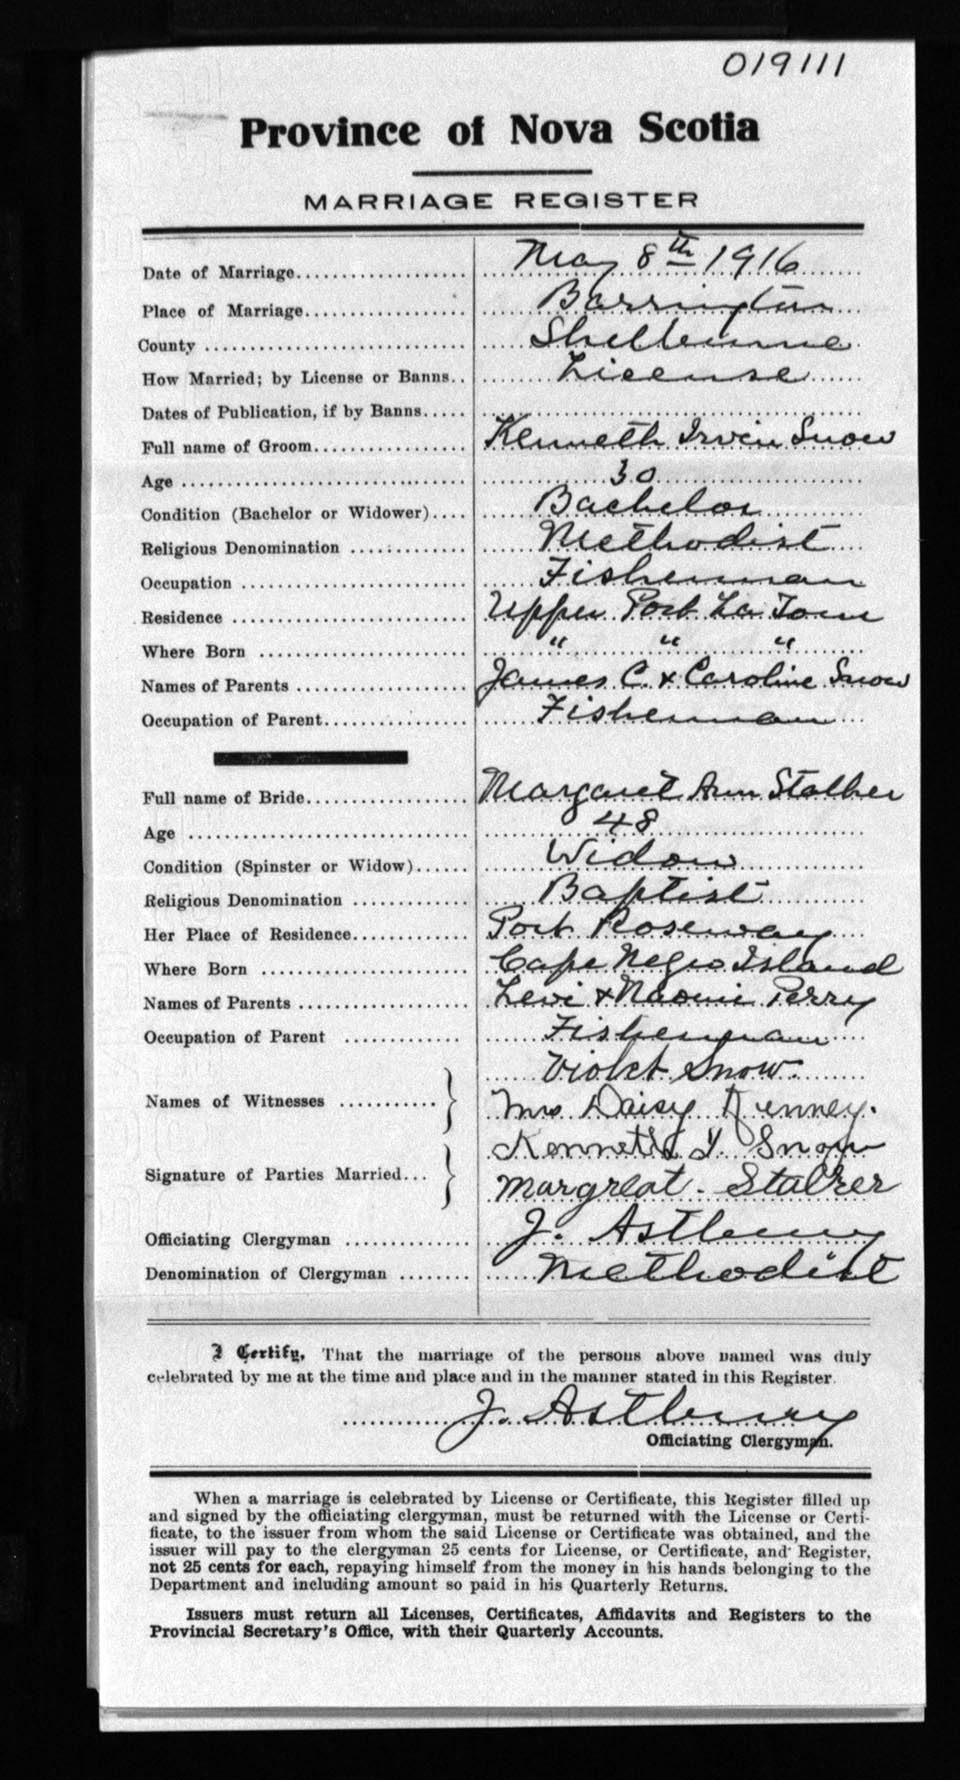 019111
Province of Nova Scotia
MARRIAGE REGISTER
Date of Marriage.................... May 8th 1916
Place of Marriage................... Barrington
County .............................. Shelburne
How Married; by License or Banns.. License
Dates of Publication, if by Banns.....
Full name of Groom.................. Kenneth Irvin Snow
Age ................................. 30
Condition (Bachelor or Widower).... Bachelor
Religious Denomination ............. Methodist
Occupation .......................... Fisherman
Residence ........................... Upper Port La Tour
Where Born ........................ " " "
Names of Parents ................... James C. & Caroline Snow
Occupation of Parent................ Fisherman
Full name of Bride.................. Margaret Ann Stalker
Age ................................. 48
Condition (Spinster or Widow)...... Widow
Religious Denomination ............. Baptist
Her Place of Residence............. Port Roseway
Where Born ........................ Cape Negro Island
Names of Parents ................... Levi & Naomi Perry
Occupation of Parent ............. Fisherman
Violet Snow.
Names of Witnesses ........... } Mrs Daisy Kenney.
Kenneth I. Snow
Signature of Parties Married... } Margreat. Stalker
Officiating Clergyman .............. J. Astbury
Denomination of Clergyman ........ Methodist
I Certify, That the marriage of the persons above named was duly
celebrated by me at the time and place and in the manner stated in this Register.
J. Astbury
Officiating Clergyman.
When a marriage is celebrated by License or Certificate, this Register filled up
and signed by the officiating clergyman, must be returned with the License or Certi-
ficate, to the issuer from whom the said License or Certificate was obtained, and the
issuer will pay to the clergyman 25 cents for License, or Certificate, and Register,
not 25 cents for each, repaying himself from the money in his hands belonging to the
Department and including amount so paid in his Quarterly Returns.
Issuers must return all Licenses, Certificates, Affidavits and Registers to the
Provincial Secretary's Office, with their Quarterly Accounts.